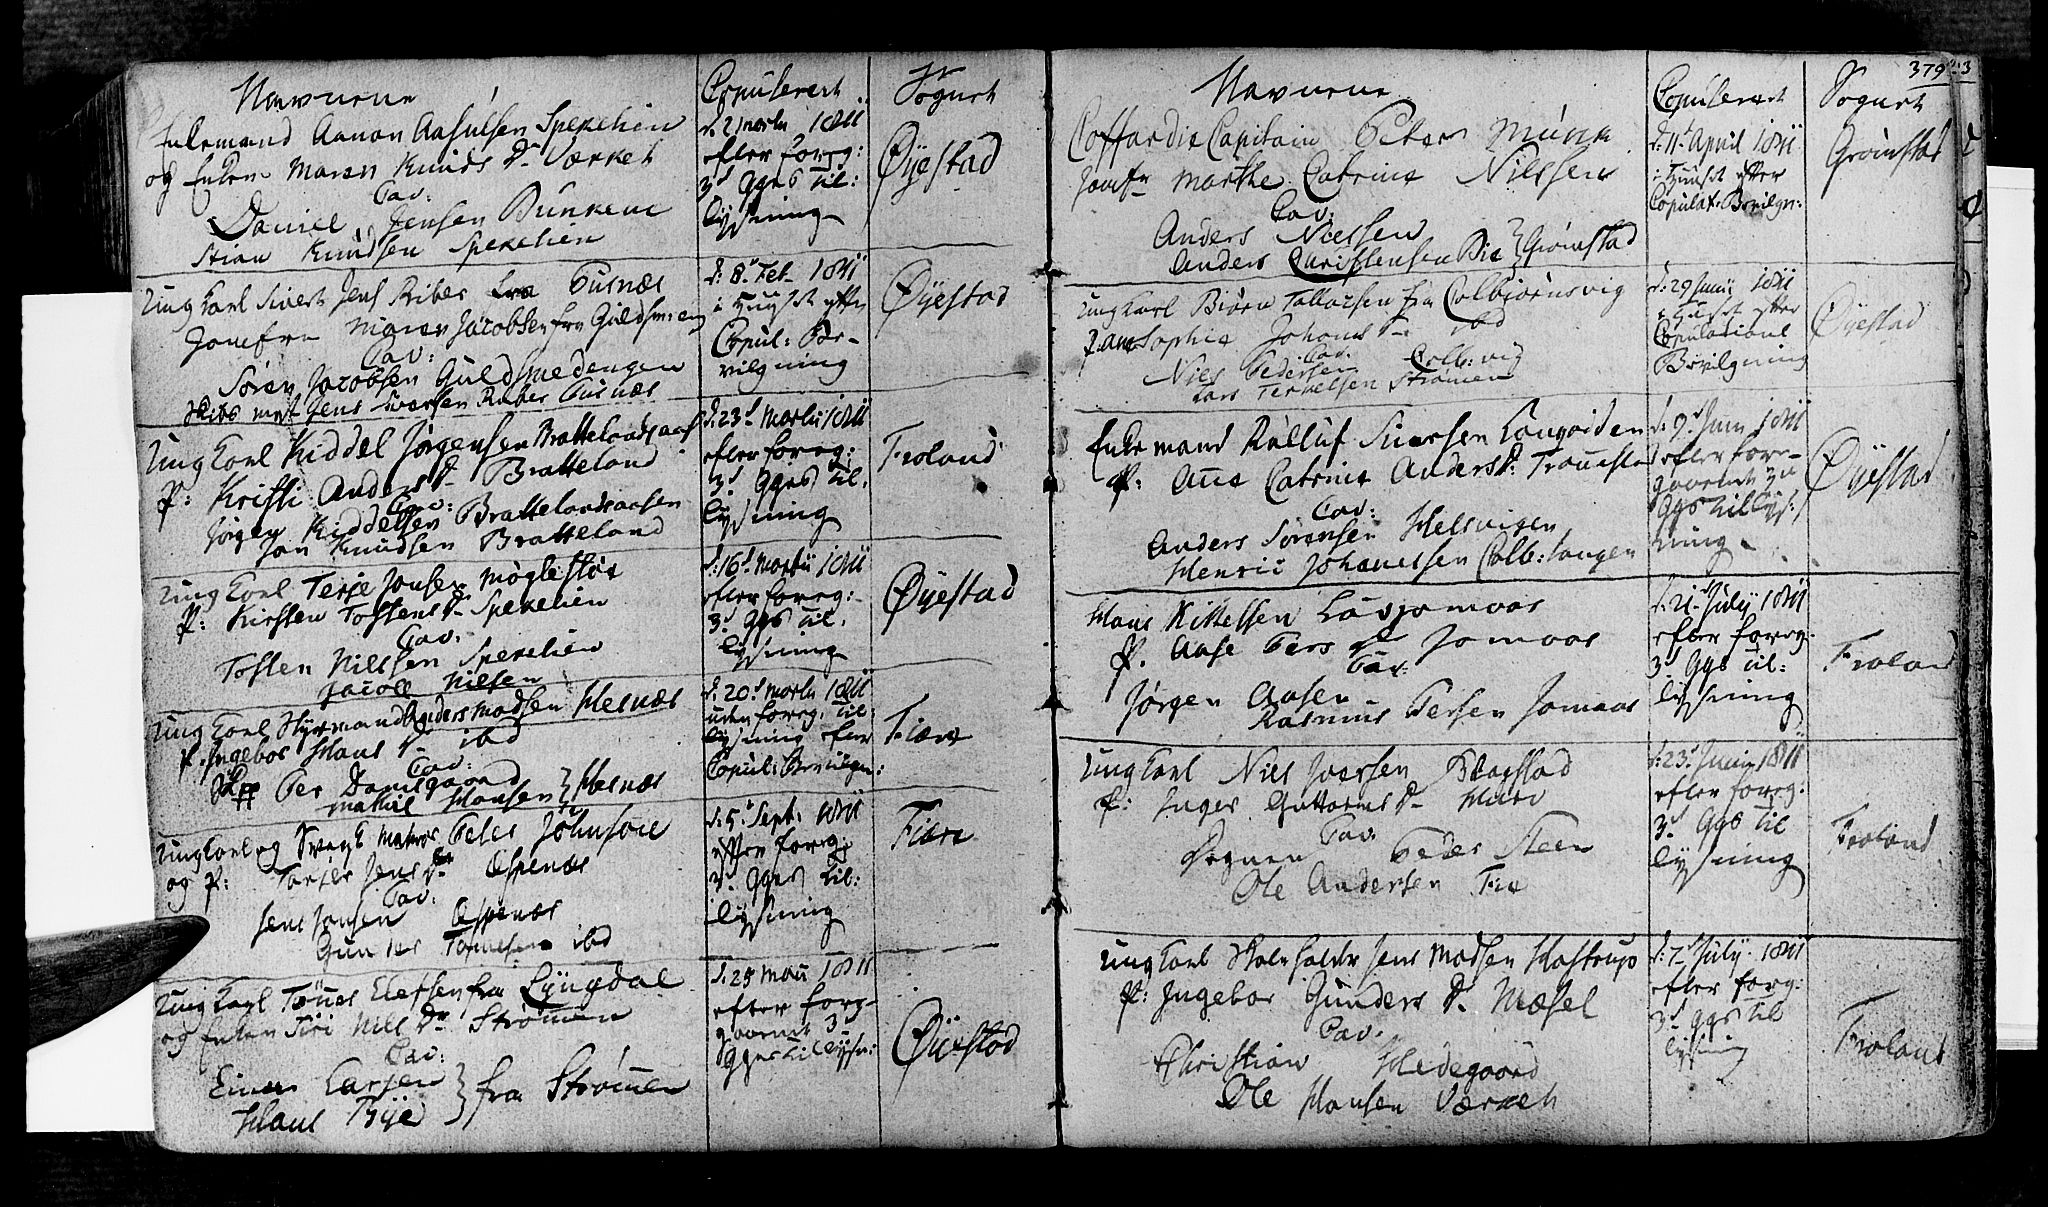 Navnene
Copuleret
Sognet
Enkemand Aanon Aasulsen Spekelien
og Enken Maren Knuds D. Værket
Cav:
Daniel Jensen Bunkene
Stian Knudsen Spekelien
d. 2 Martii 1811
efter foreg:
3d Ggs til:
lysning
Øyestad
Ung Karl Sivert Jens Riber fra Tusnæs
Jomfru Maren Jacobsen fra Guldsmeng
Cav:
Søren Jacobsen Guldsmedengen
Jens Iversen Riber Tusnæs
d: 8d Feb. 1811
i Huuset efter
Copul: Be-
vilgning
Øyestad
Ung Karl Kiddel Jørgensen Brattelandsaas
P: Kristi Anders D. Bratteland
Cav:
Jørgen Kiddelsen Brattelandsaasen
Jon Knudsen Bratteland
d: 23d Martii 1811
efter foreg:
3d Ggs til.
lysning
Froland
Ung Karl Terje Jonsen Møglestøe
P: Kirsten Tostens D. Spekelien
Cav:
Tosten Nilssen Spekelien
Jacob Nilsen
d: 16d Martii 1811
efter foreg:
3d Ggs til.
lysning
Øyestad
Ung Karl Styrmand Anders Madsen Hesnæs
P. Ingebor Hans D. ibd
Cav:
Per Danielgaard
Mathis Hansen } Hesnæs
d. 20d Martii 1811
uden foreg. til
lysning efter
Copul: Bevilgn:
Fiære
Ung Karl og Svensk Matros Peter Johnsøn
og P: Tarjer Jens D. Espenæs
Cav:
Jens Jonsen Espenæs
Gunder Tomesen ibd
d: 5t Sept. 1811
efter foreg:
3. Ggs til:
lysning
Fiære
Ung Karl Tønes Elefsen fra Lyngdal
og Enken Siri Nils D. Strømen
Cav:
Einer Larsen
Hans Bye } fra Strømen
d: 25 Maii 1811
efter forg-
gaaende 3
Ggs tillysn:
Øyestad
379
Navnene
Copuleret
Sognet
Coffardie Capitain Peter Münk
Jomfr Marthe Catrine Nilssen
Cav:
Anders Nielsen
Anders Christensen Bie } Grimstad
d. 11d April 1811
i Huuset efter
Copulat: Bevilgn:
Grimstad
Ung Karl Biørn Tallaxsen fra Colbiørnsvig
P. Ane Sophie Johans D. ibd
Cav.
Niels Pedersen Colb:vig
Lars Terkelsen Strømen
d. 29 Junii 1811
i Huset efter
Copulations
Bevilgning
Øyestad
Enkemand Rølluf Siversen Longviden
P: Ane Catrine Anders D.
Cav:
Anders Sørensen Helsvigen
Henric Johanessen Colb:tangen
d. 9d Junii 1811
efter fore-
gaaende 3
Ggs tillys:
ning
Øyestad
Hans Kittelsen Lausjomaas
P. Aase Pers D. Jomaas
Cav.
Jørgen Aasen
Rasmus Persen Jomaas
d. 21d July 1811
efter foreg.
3d Ggs til:
lysning
Froland
Ung Karl Niels Iversen Bøgstad
P: Inger Guttorms D.
Cav.
Peder Steen
Ole Andersen
d: 23d Junii 1811
efter foreg:
3d Ggs til
lysning
Froland
Ung Karl Skoleholder Jens Madsen Hastrup
P: Ingebor Gunders D. Mæsel
Cav.
Christian Hedegaard
Ole Hansen Værket
d: 7d July 1811
efter foreg:
3d Ggs til
lysning
Froland